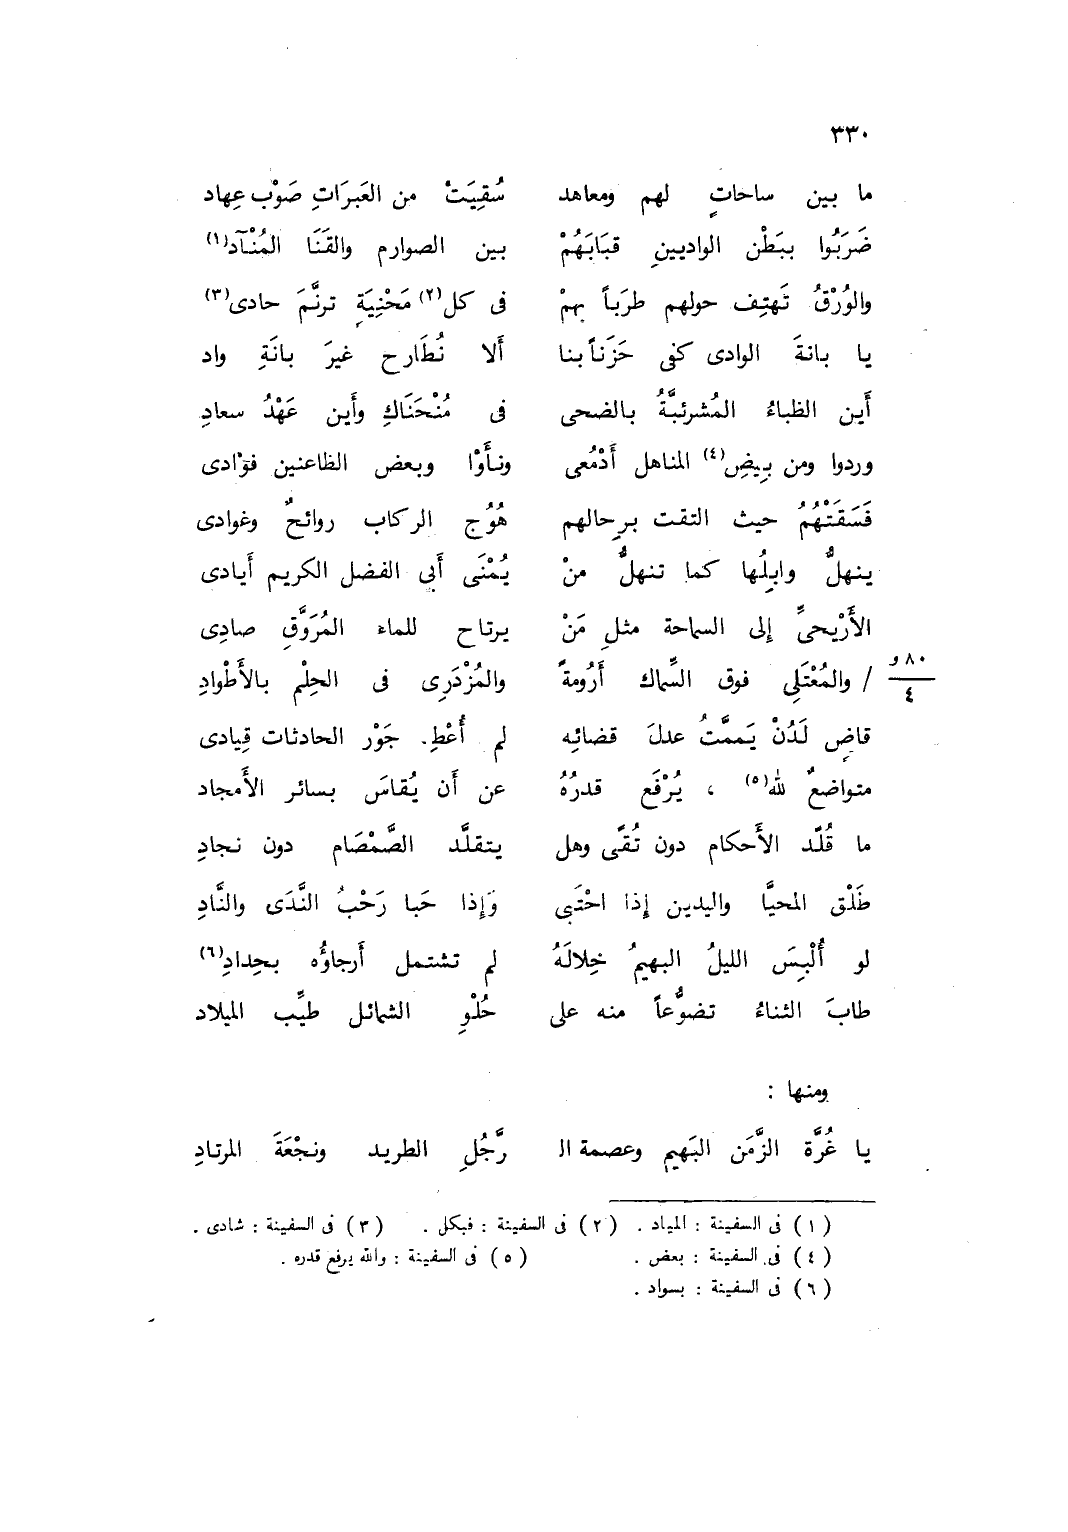 ٣٣٠
ما بين ساحاتٍ لهم ومعاهد سُقِيَتْ من العَبَرَاتِ صَوْب عِهاد
ضَرَبُوا ببَطْن الواديينِ قبَابَهُمْ بين الصوارم والقَنَا المُنْآد(١)
والوُرْقُ تَهتِف حولهم طرَباً بهمْ فى كل(٢) مَحْنِيَةٍ ترنَّمَ حادى(٣)
يا بانةَ الوادى كفى حَزَناً بنا ألا نُطَارح غيرَ بانَةِ واد
أَين الظباءُ المُشرئبَّةُ بالضحى فى مُنْحَنَاكِ وأَين عَهْدُ سعادِ
وردوا ومن بِيضِ(٤) المناهل أَدْمُعى ونأَوْا وبعض الظاعنين فؤادى
فَسَقَتْهُمُ حيث التقت برِحالهم هُوُج الركاب روائحٌ وغوادى
ينهلُّ وابِلُها كما تنهلُّ منْ يُمْنَى أَبى الفضل الكريم أَيادى
الأَرْيحىِّ إلى السماحة مثلِ مَنْ يرتاح للماء المُرَوَّقِ صادِى
/ والمُعْتَلِى فوق السِّماك أَرُومةً والمُزْدَرِى فى الحِلْم بالأَطْوادِ
٨٠ و
٤
قاضٍ لَدُنْ يَممَّتُ عدلَ قضائِه لم أُعْطِ. جَوْر الحادثات قِيادى
متواضعٌ لله(٥) ، يُرْفَع قدرُهُ عن أَن يُقاسَ بسائر الأَمجاد
ما قُلِّد الأَحكام دون تُقًى وهل يتقلَّد الصَّمْصَام دون نجادِ
طَلْق المحيَّا واليدين إذا احْتَبى وَإذا حَبا رَحْبُ النَّدَى والنَّادِ
لو أُلْبِسَ الليلُ البهيمُ خِلالَهُ لم تشتمل أَرجاؤُه بحِدادِ(٦)
طابَ الثناءُ تضوُّعاً منه على حُلْوِ الشمائل طيِّب الميلاد
ومنها :
يا غُرَّة الزَّمَن البَهيم وعصمة الـ رَّجُلِ الطريد ونجْعَةَ المرتادِ
(١) فى السفينة : المياد . (٢) فى السفينة : فبكل . (٣) فى السفينة : شادى .
(٤) فى السفينة : بعض . (٥) فى السفينة : والله يرفع قدره .
(٦) فى السفينة : بسواد .